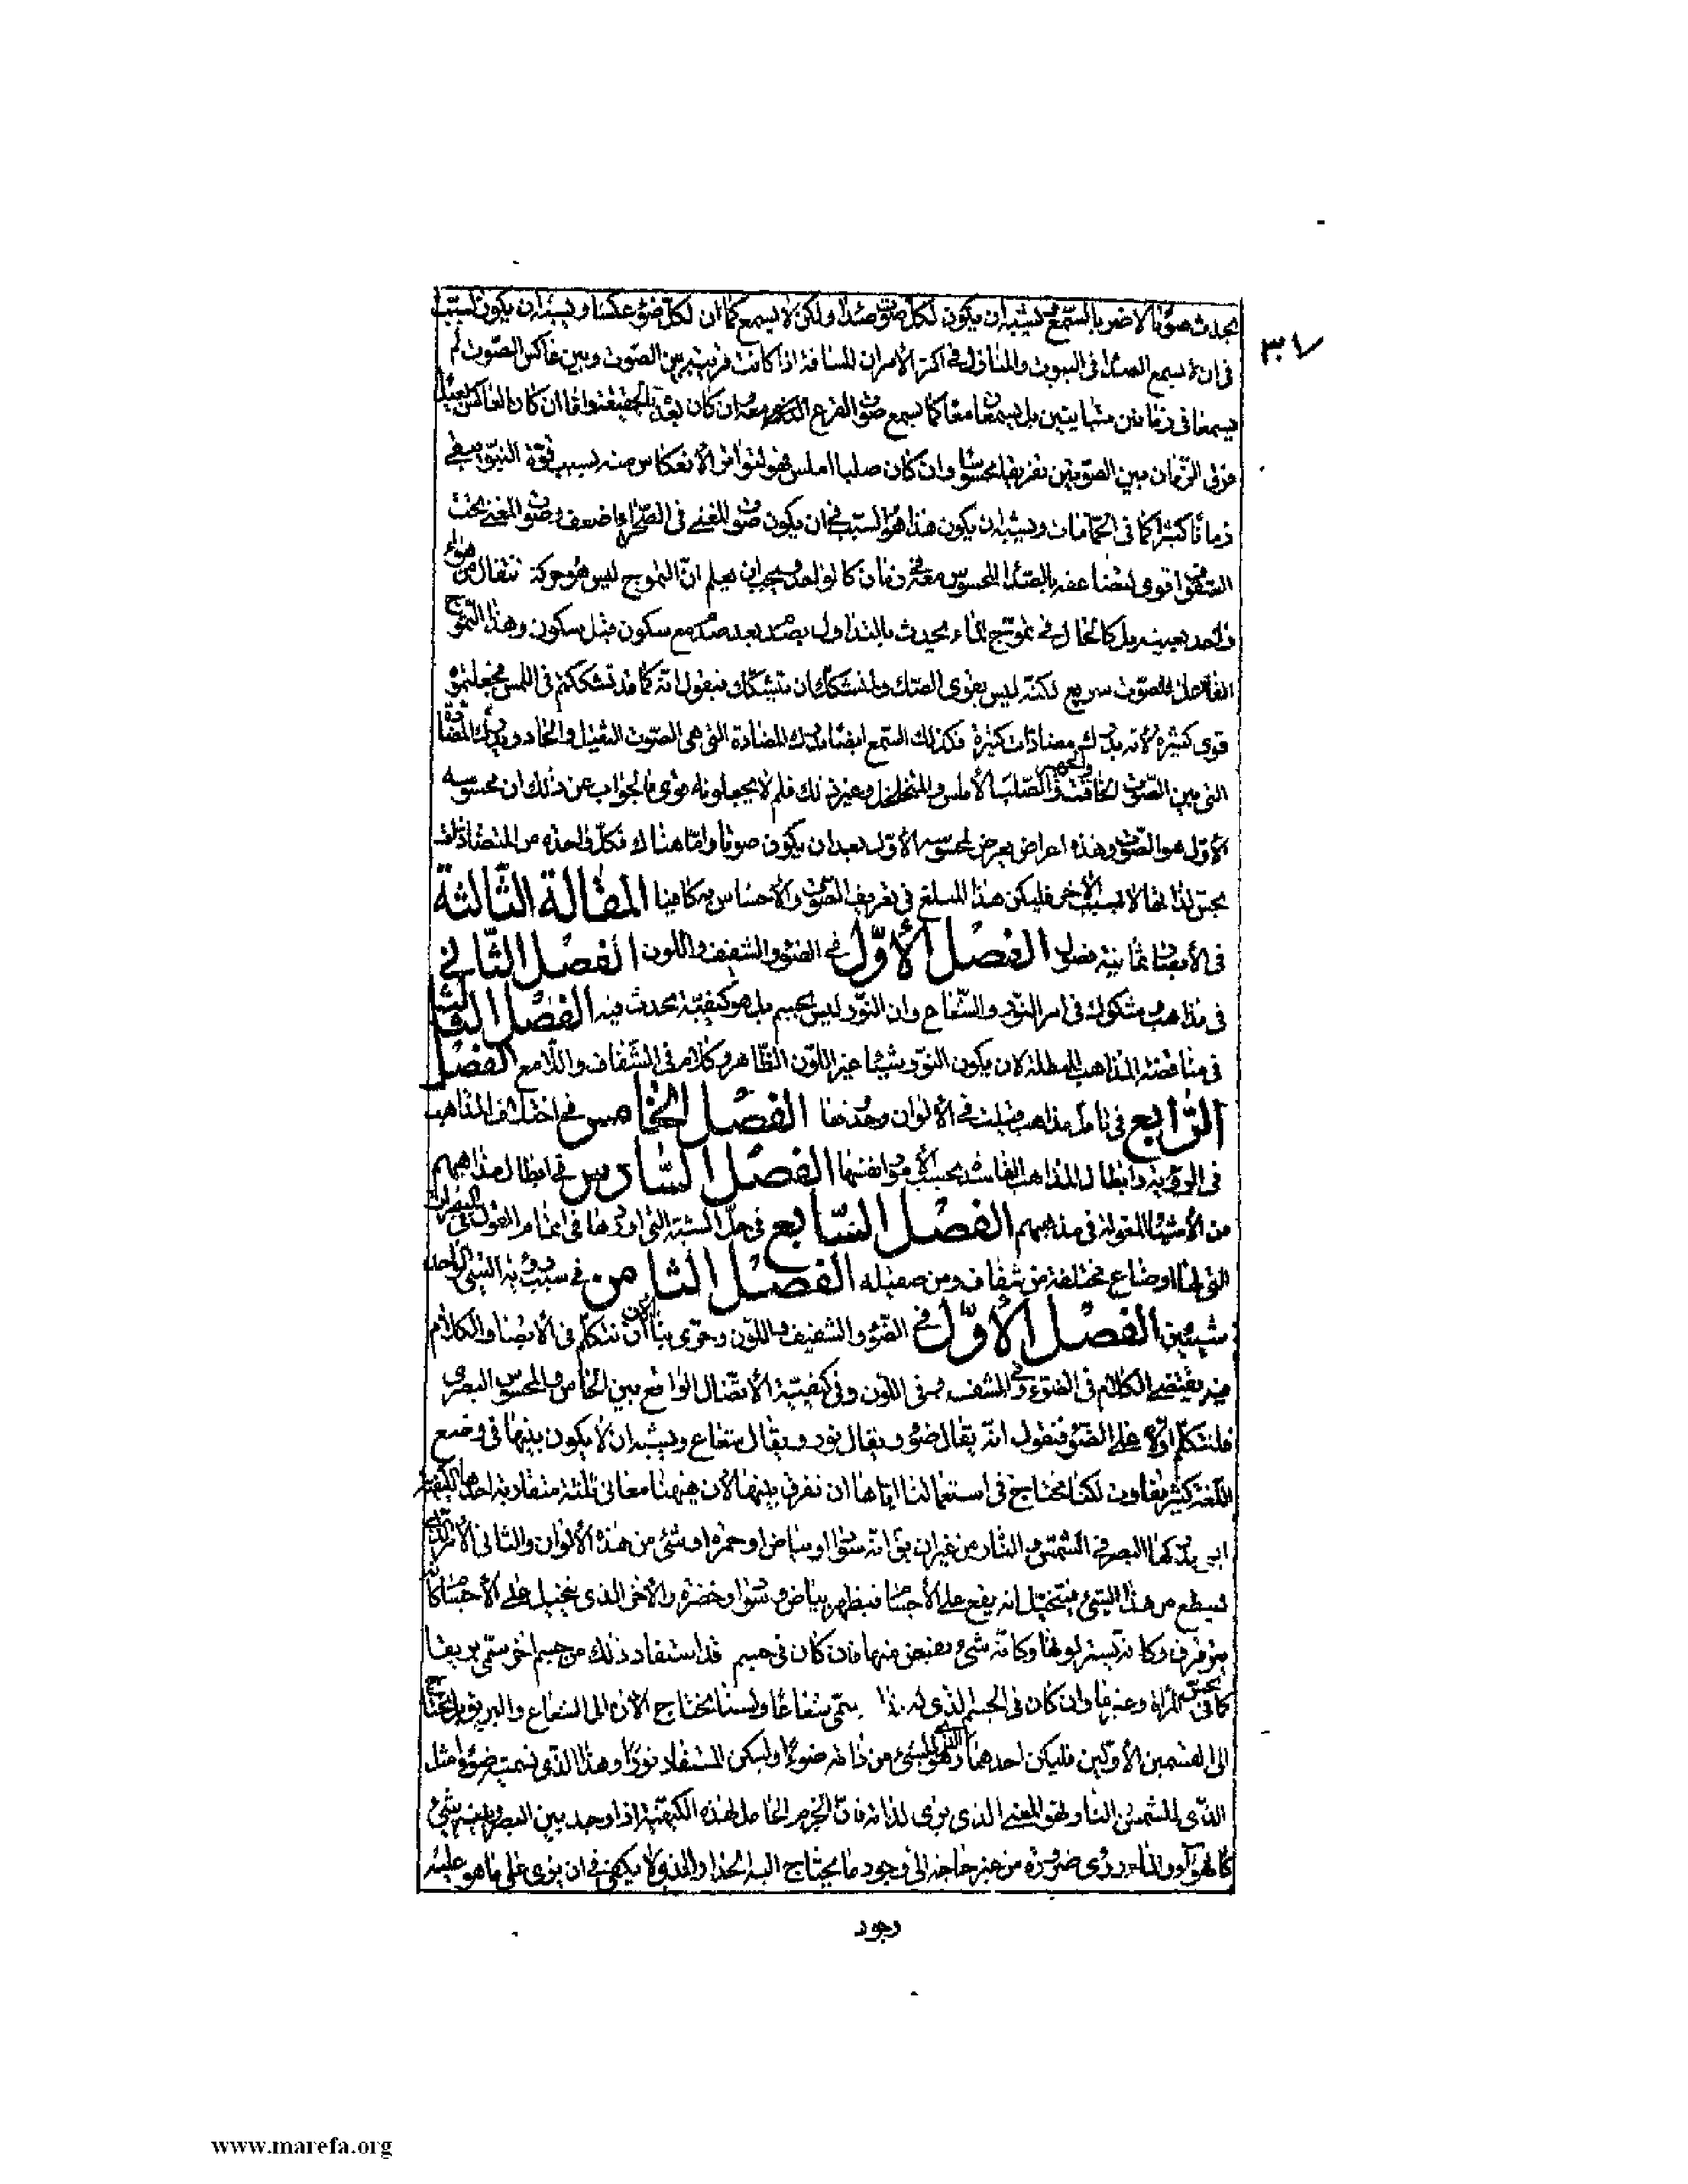 يحدث صوتا الا ضربا بالسمع فيشبه ان يكون لكل صوت صدا ولكن لا يسمع كما ان لكل ضوء عكسا ويشبه ان يكون السبب
٣٠٧
فى ان لا يسمع الصدا فى البيوت والمنازل فى اكثر الامر ان المسافة اذا كانت قريبة بين الصوت وبين عاكس الصوت لم
يسمعا فى زمانين متباينين بل يسمعان معا كما يسمع صوت القرع معه وان كان بعده بالحقيقة واما ان كان العاكس بعيدا
فرق الزمان بين الصوتين تفريقا محسوسا وان كان صلبا املس فهو لتواتر الانعكاس منه بسبب قوة النبو يبقى
زمانا كثيرا كما فى الحمامات ويشبه ان يكون هذا هو السبب فى ان يكون صوت المغنى فى الصحراء اضعف وصوت المغنى تحت
السقوف اقوى لتضاعفه بالصدا المحسوس معه فى زمان كالواحد ويجب ان يعلم ان التموج ليس هو حركة انتقال من هواء
واحد بعينه بل كالحال فى تموج الماء يحدث بالتداول بصدم بعد صدم مع سكون قبل سكون وهذا التموج
الفاعل للصوت سريع لكنه ليس بقوى الصك ولمتشكك ان يتشكك فيقول انه كما قد تشككتم فى اللمس فجعلتموه
قوى كثيرة لانه يدرك مضادات كثيرة فكذلك السمع ايضا يدرك المضادة التى هى الصوت الثقيل والحاد ويدرك المضادة
التى بين الصوت الخافت والجهير والصلب والاملس والمتخلخل وغير ذلك فلم لا تجعلونه قوى فالجواب عن ذلك ان محسوسه
الاول هو الصوت وهذه اعراض يعرض لمحسوسه الاول بعد ان يكون صوتا واما هناك فكل واحدة من المتضادات
يحس لذاتها لا بسبب الاخر فليكن هذا المبلغ فى تعريف الصوت والاحساس به كافيا المقالة الثالثة
فى الابصار ثمانية فصول الفصل الاول فى الضوء والشفيف واللون الفصل الثانى
فى مذاهب وشكوك فى امر النور والشعاع وان النور ليس بجسم بل هو كيفية يحدث فيه الفصل الثالث
فى مناقضة المذاهب المبطلة لان يكون النور شيئا غير اللون الظاهر وكلام فى الشفاف واللامع الفصل
الرابع فى تامل مذاهب قيلت فى الالوان وحدوثها الفصل الخامس فى اختلاف المذاهب
فى الروية وابطال المذاهب الفاسدة بحسب الامور انفسها الفصل السادس فى ابطال مذاهبهم
من الاشياء المقولة فى مذاهبهم الفصل السابع فى حل الشبه التى اوردها فى اتمام القول فى المبصرات
التى لها اوضاع مختلفة من شفاف ومن صقيله الفصل الثامن فى سبب روية الشىء الواحد
شيئين الفصل الاول فى الضوء والشفيف واللون وحرى بنا الان ان نتكلم فى الابصار والكلام
فيه يقتضى الكلام فى الضوء وفى المشف وفى اللون وفى كيفية الاتصال الواقع بين الحاس والمحسوس البصرى
فلنتكلم اولا على الضوء فنقول انه يقال ضوء ويقال نور ويقال شعاع ويشبه ان لا يكون بينها فى وضع
اللغة كثير تفاوت لكنا نحتاج فى استعمالنا اياها ان نفرق بينها لان هيهنا معانى ثلثة متقاربة احدها الكيفية
التى يدركها البصر فى الشمس والنار من غير ان يق انه سواد او بياض او حمرة او شئ من هذه الالوان والثانى الامر الذى
يسطع من هذا الشئ فيتخيل انه يقع على الاجسام فيظهر بياض وسواد وخضرة والاخر الذى يتخيل على الاجسام كانه
يترقرق وكانه يستر لونها وكانه شئ يفيض منها فان كان فى جسم قد استفاد ذلك من جسم اخر سمى بريقا
كما يحس فى المرآة وغيرها وان كان فى الجسم الذى له بذاته سمى شعاعا ولسنا نحتاج الان الى الشعاع والبريق بل نحتاج
الى القسمين الاولين فليكن احدهما وهو الذى للشئ من ذاته ضوءا وليكن المستفاد نورا وهذا الذى نسميه ضوءا مثل
الذى للشمس والنار فهو المعنى الذى يرى لذاته فان الجرم الحامل لهذه الكيفية اذا وجد بين البصر وبينه شئ
كالهواء والماء رؤى ضرورة من غير حاجة الى وجود ما يحتاج اليه الجدار الذى لا يكفى فى ان يرى على ما هو عليه
وجود
www.marefa.org